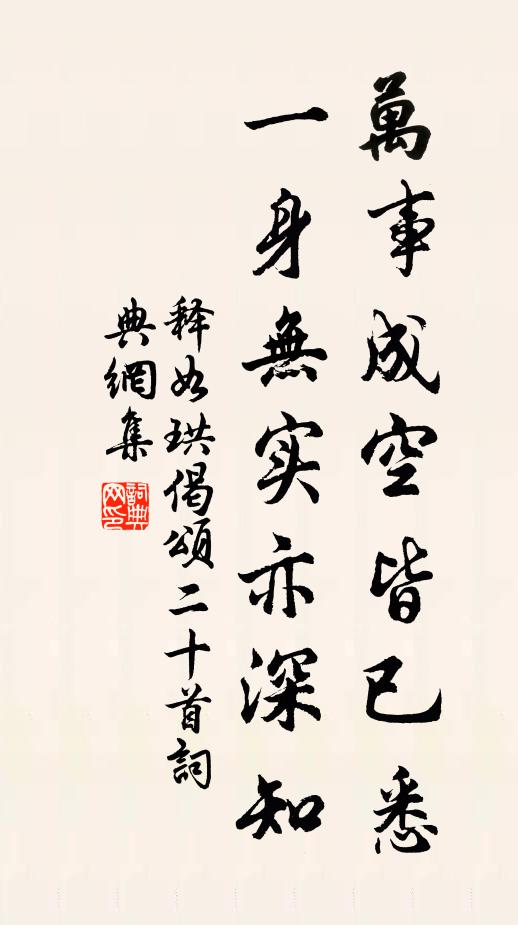 萬事成空皆已悉
一身無实亦深知
释如珙偈頌二十首詞
典網集
詞典
网印